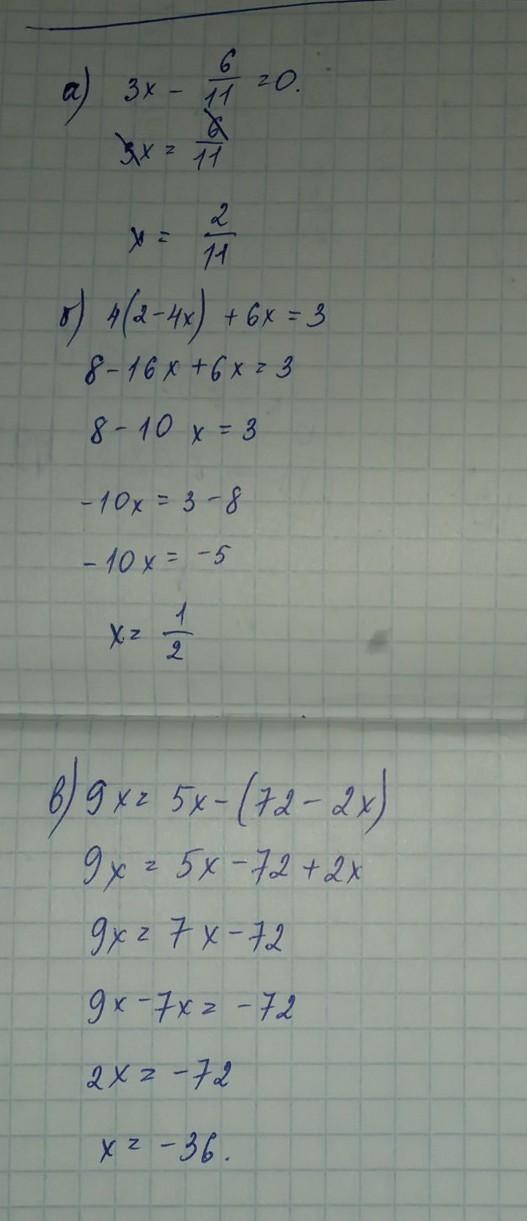 а) 3x - 6/11 = 0.
3x = 6/11
x = 2/11
б) 4(2-4x) + 6x = 3
8-16x+6x=3
8-10x=3
-10x=3-8
-10x=-5
x=1/2
в) 9x=5x-(72-2x)
9x=5x-72+2x
9x=7x-72
9x-7x=-72
2x=-72
x=-36.